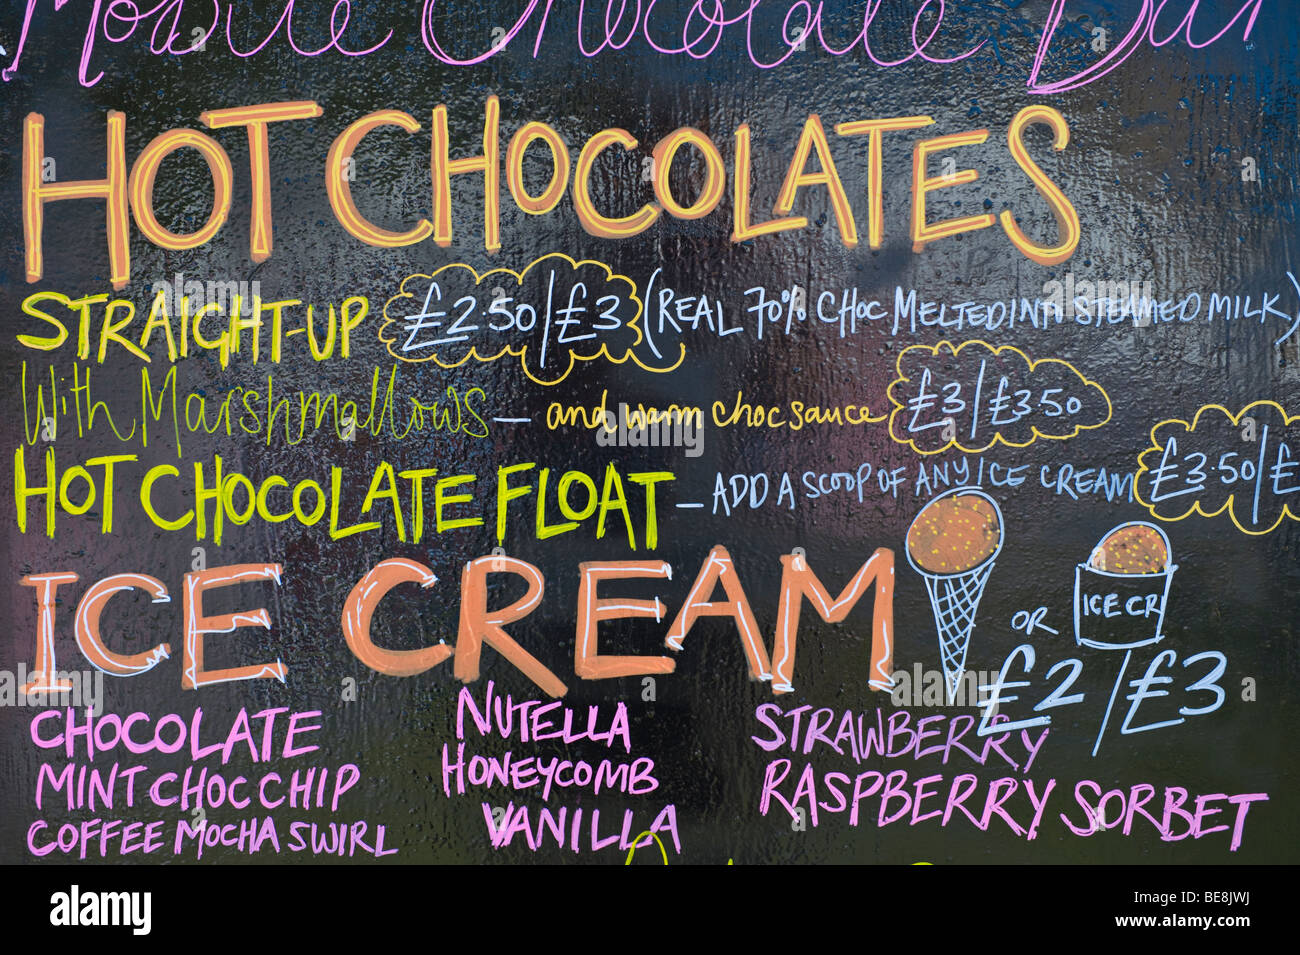 Mobile Chocolate Bar
HOT CHOCOLATES
STRAIGHT-UP £2.50/£3 (REAL 70% CHOC MELTED INTO STEAMED MILK)
With Marshmallows — and warm choc sauce £3/£3.50
HOT CHOCOLATE FLOAT — ADD A SCOOP OF ANY ICE CREAM £3.50/£
ICE CREAM
OR
ICE CR
£2/£3
CHOCOLATE
MINT CHOC CHIP
COFFEE MOCHA SWIRL
NUTELLA
HONEYCOMB
VANILLA
STRAWBERRY
RASPBERRY SORBET
alamy
Image ID: BE8JWJ
www.alamy.com